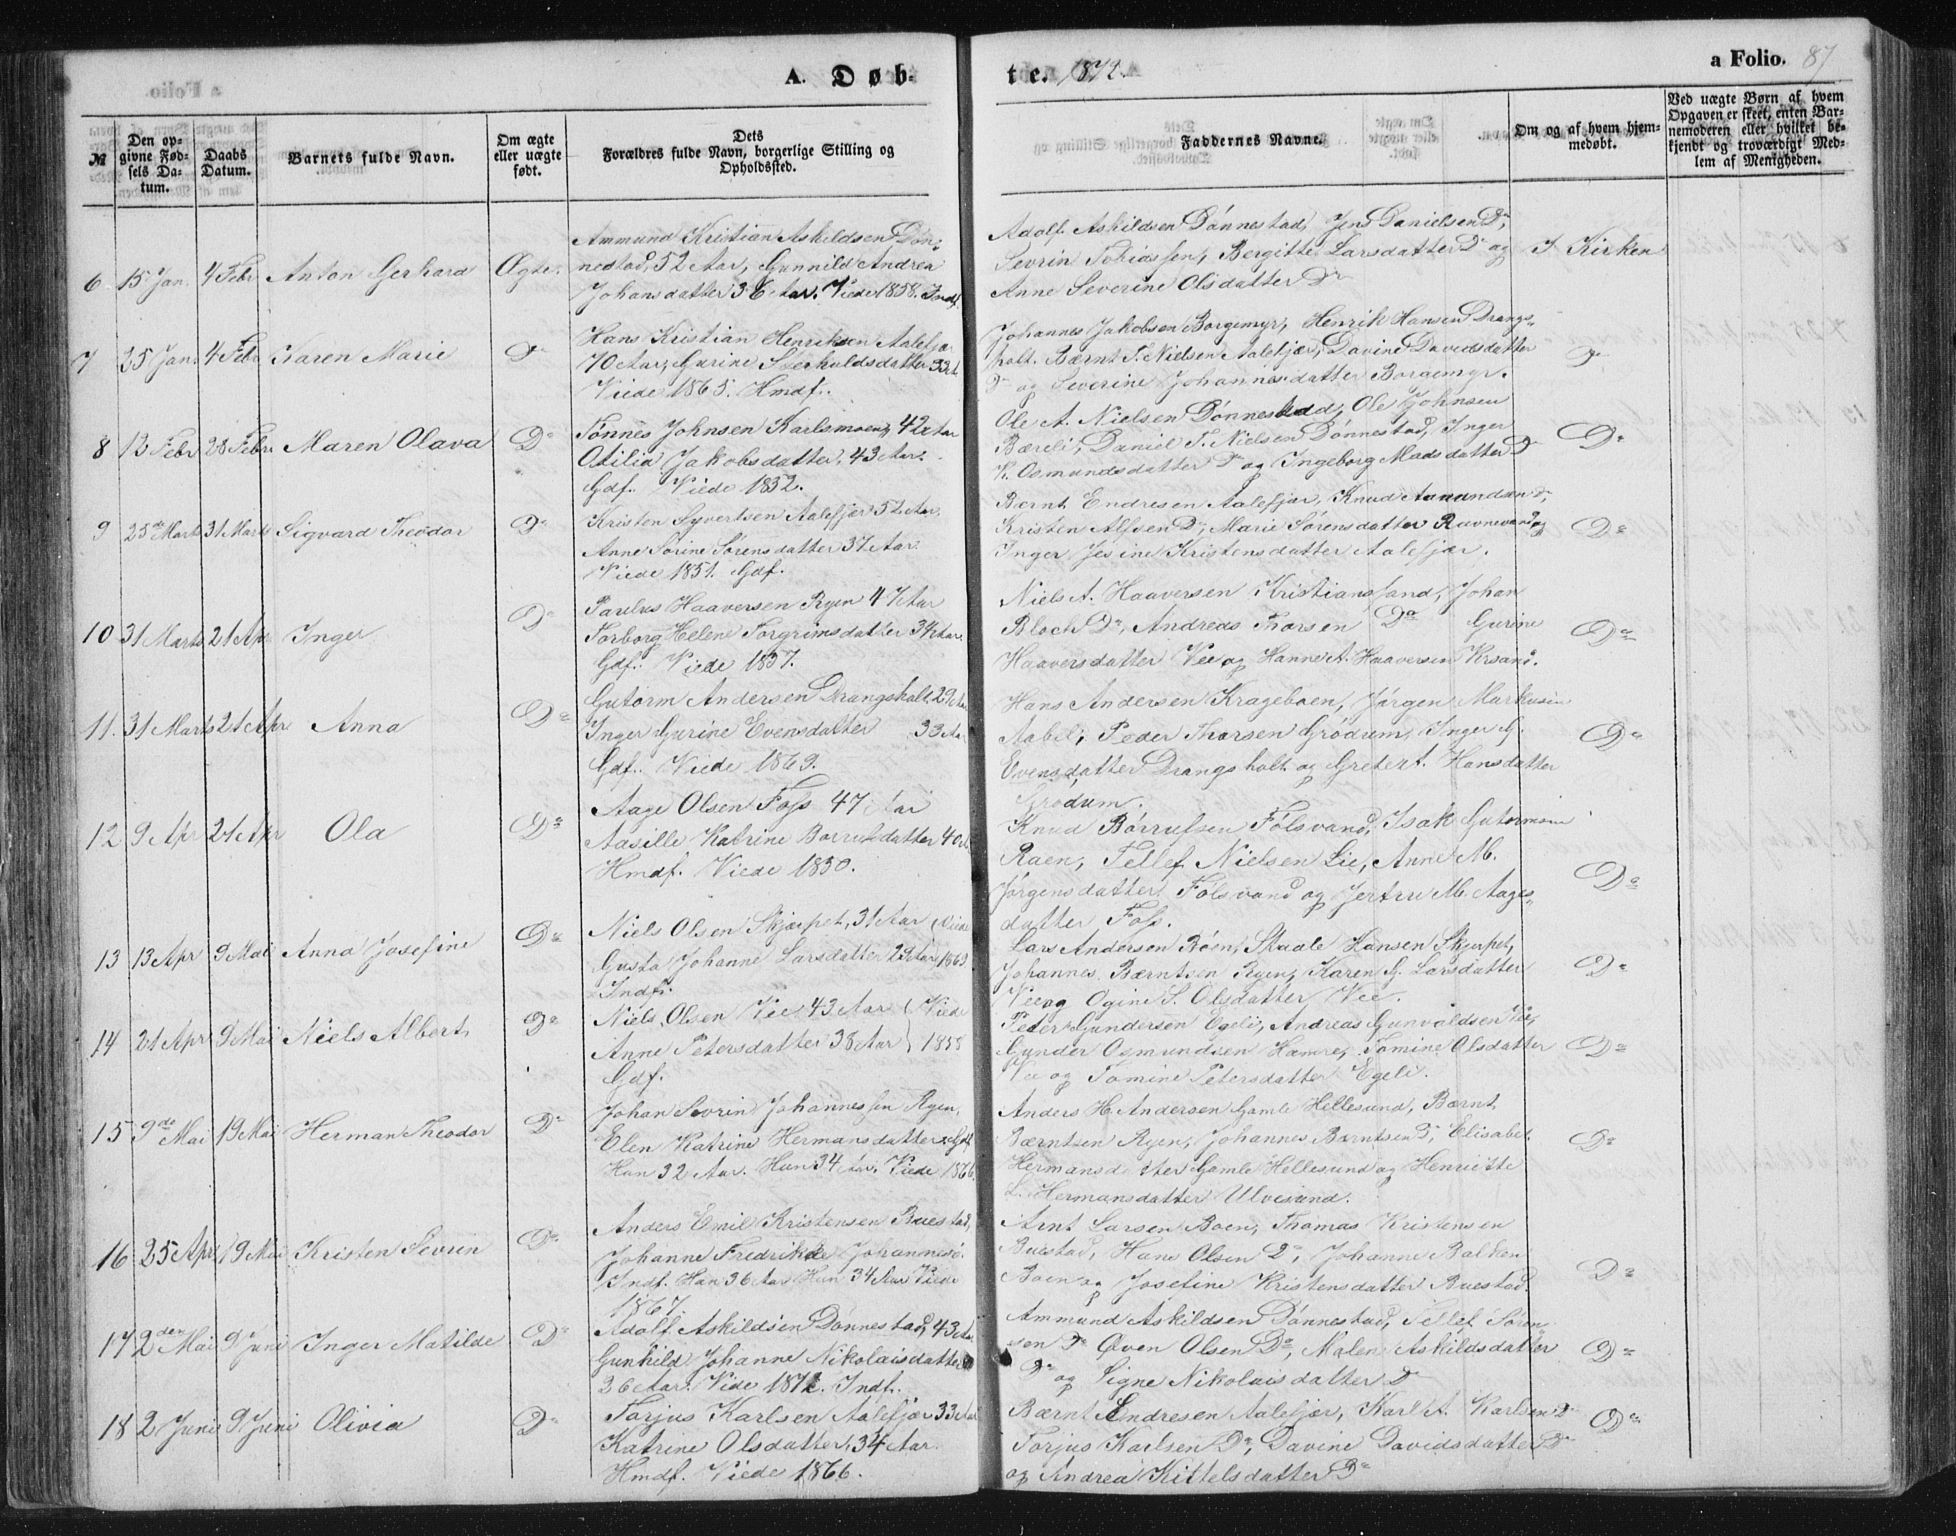 A. Døb-
te. 1872.
a Folio. 87
№
Den opgivne Fødsels Datum.
Daabs Datum.
Barnets fulde Navn.
Om ægte eller uægte født.
Dets Forældres fulde Navn, borgerlige Stilling og Opholdssted.
Faddernes Navne.
Om og af hvem hjemmedøbt.
Ved uægte Børn af hvem Opgaven er skeet, enten Barnemoderen eller hvilket bekjendt og troværdigt Medlem af Menigheden.
6 15 Jan. 4 Febr Anton Gerhard Ægte.
Ammund Kristian Askildsen Døn-
nestad, 52 Aar, Gunnild Andrea
Johansdatter 36 Aar. Viede 1858. Indf.
Adolf Askildsen Dønnestad, Jens Danielsen Do
Sevrin Tobiassen, Bergitte Larsdatter Do og
Anne Severine Olsdatter Do
I Kirken
7 25 Jan. 4 Febr Karen Marie Do
Hans Kristian Henriksen Aalefjær
70 Aar, Gurine Sverkuldsdatter 33 A.
Viede 1865. Hmdf.
Johannes Jakobsen Borgemyr, Henrik Hansen Drangs-
holt. Bærnt T. Nielsen Aalefjær, Davine Davidsdatter
Do og Severine Johannesdatter Borgemyr.
Do
8 13 Febr 28 Febr. Maren Olava Do
Tønnes Johnsen Karlsmoen, 42 Aar
Otilia Jakobsdatter, 43 Aar.
Gdf. Viede 1852.
Ole A. Nielsen Dønnestad, Ole Johnsen
Bæreli, Daniel T. Nielsen Dønnestad, Inger
K. Osmundsdatter Do og Ingeborg Madsdatter Do
Do
9 25de Marts 31 Marts Sigvard Theodor Do
Kristen Syvertsen Aalefjær 52 Aar.
Anne Sørine Sørensdatter 37 Aar.
Viede 1851. Gdf.
Bærnt Endresen Aalefjær, Knud Amundsen Do,
Kristen Alfsen Do, Marie Sørensdatter Ravnevand og
Inger Jesine Kristensdatter Aalefjær.
Do
10 31 Marts 21 Apr Inger Do
Paulus Haaversen Ryen 47 Aar
Torborg Helene Torgrimsdatter 34 Aar.
Gdf. Viede 1857.
Niels A. Haaversen Kristianssand, Johan
Bloch Do, Andreas Thorsen Do Gurine
Haaversdatter Vee og Hanne A. Haaversen Krsand.
Do
11. 31 Marts 21 Apr Anna Do
Gutorm Andersen Drangsholt, 29 Aar
Inger Gurine Evensdatter 33 Aar
Gdf. Viede 1869.
Hans Andersen Krageboen, Jørgen Markusen
Aabel, Peder Thorsen Grødum, Inger G.
Evensdatter Drangsholt og Grete A. Hansdatter
Grødum.
Do
12 9 Apr 21 Apr Ola Do
Aage Olsen Foss 47 Aar
Aasille Katrine Børrufsdatter 40 A.
Hmdf. Viede 1850.
Knud Børrufsen Følsvand, Isak Gutormsen
Raen, Tellef Nielsen Lie, Anne M.
Jørgensdatter Følsvand og Jertru M. Aages-
datter Foss.
Do
13 13 Apr 9 Mai Anna Josefine Do
Niels Olsen Skjærpet, 31 Aar (Viede
Gusta Johanne Larsdatter 29 Aar) 1869
Indf.
Lars Andersen Boen, Staale Hansen Skjerpet,
Johannes Bærntsen Ryen, Karen G. Larsdatter
Vee og Ogine S. Olsdatter Vee.
Do
14 21 Apr 9 Mai Niels Albert Do
Niels Olsen Vee 43 Aar (Viede
Anne Petersdatter 38 Aar) 1858
Gdf.
Peter Gundersen Egeli, Andreas Gunvaldsen Vee,
Gunder Osmundsen Hamre, Tomine Olsdatter
Vee og Tomine Petersdatter Egeli.
Do
15 9de Mai 19 Mai Herman Theodor Do
Johan Sevrin Johannessen Ryen,
Elen Katrine Hermansdatter Gdf
Han 32 Aar. Hun 34 Aar. Viede 1866.
Anders H. Andersen Gamle Hellesund, Bærnt
Bærntsen Ryen, Johannes Bærntsen Do, Elisabet
Hermansdatter Gamle Hellesund og Henriette
L. Hermansdatter Ulvesund.
Do
16 25 Apr 19 Mai Kristen Sevrin Do
Anders Emil Kristensen Buestad,
Johanne Fredrikke Johannesd.
Indf. Han 36 Aar Hun 34 Aar Viede
1867.
Arnt Larsen Boen, Thomas Kristensen
Buestad, Hans Olsen Do, Johanne Balken
Boen og Josefine Kristensdatter Buestad.
Do
17 2den Mai 9 Juni Inger Matilde Do
Adolf Askildsen Dønnestad, 43 Aar
Gunhild Johanne Nikolaisdatter
26 Aar. Vide 1871. Indf.
Ammund Askildsen Dønnestad, Tellef Søren-
sen Do Øven Olsen Do, Malen Askildsdatter
Do og Signe Nikolaisdatter Do
Do
18 2 Juni 9 Juni Olivia Do
Torjus Karlsen Aalefjær 33 Aar
Katrine Olsdatter, 34 Aar.
Hmdf. Viede 1866.
Bærnt Endresen Aalefjær, Karl A. Karlsen Do
Torjus Karlsen Do, Davine Davidsdatter Do
og Andrea Kittelsdatter Do
Do